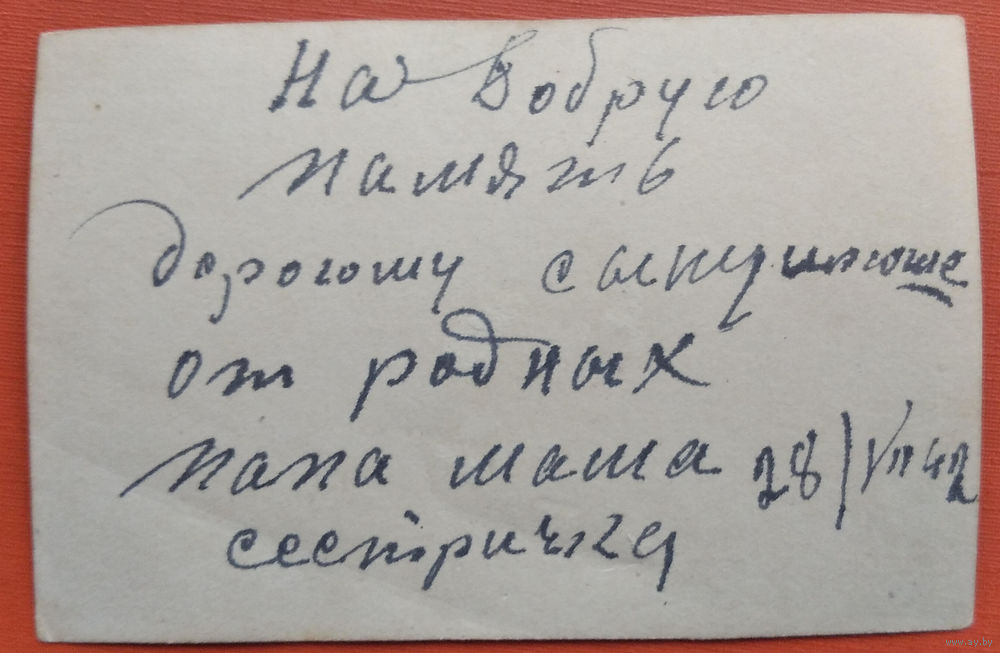 На Добрую
память
дорогому сынулюше
от родных
папа мама 28/VII 42
сестричка
www.ay.by